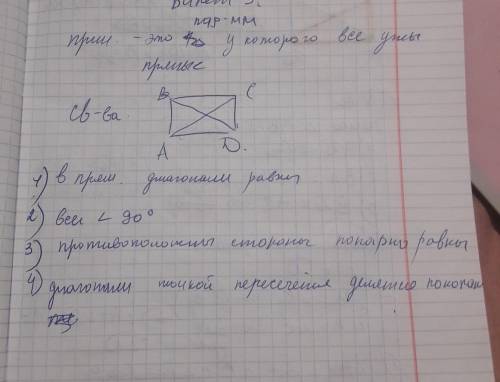 Билет 3.
пар-мм
прям. - это у которого все углы
прямые
Св-ва.
B C
A D.
1) в прям. диагонали равны
2) все ∠ 90°
3) противоположны стороны попарно равны
4) диагонали точкой пересечения делятся пополам